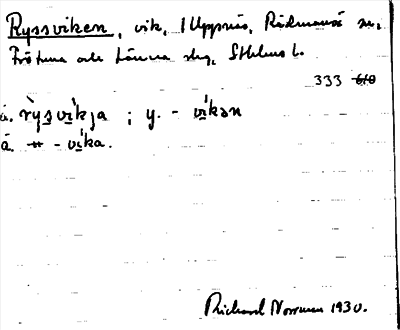 Ryssviken, vik, i Uppnäs, Rådmansö sn.
Frötuna och Länna skg, Sthlms l.
333 6/0
ä. rỳsvi̱kja ; y. - vi̱kən
ä. " - vi̱ka.
Richard Norrman 1930.